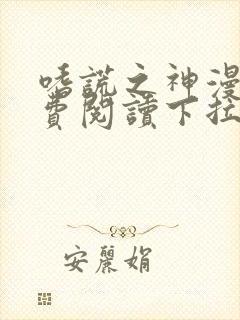 嗜謊之神漫
費閱讀下拉
安麗娟